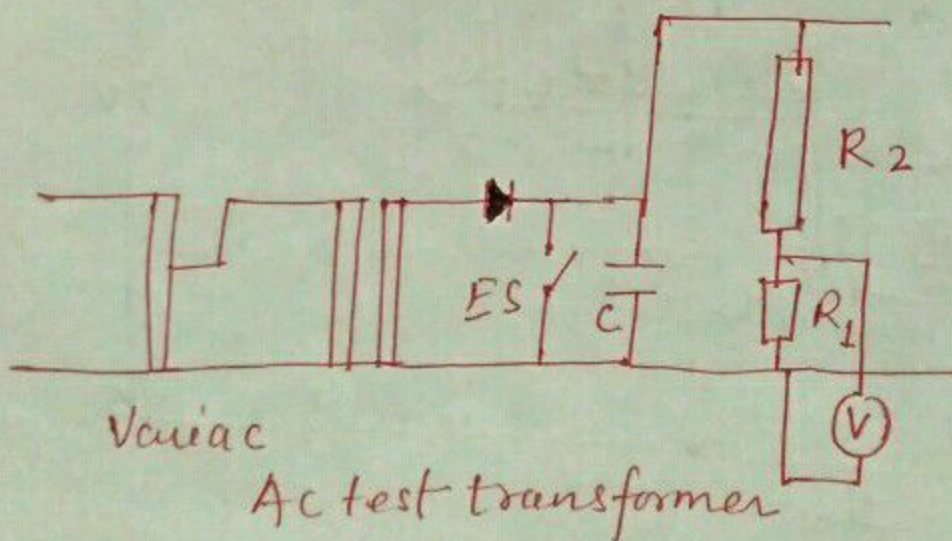 R2
ES
C
R1
V
Variac
Ac test transformer